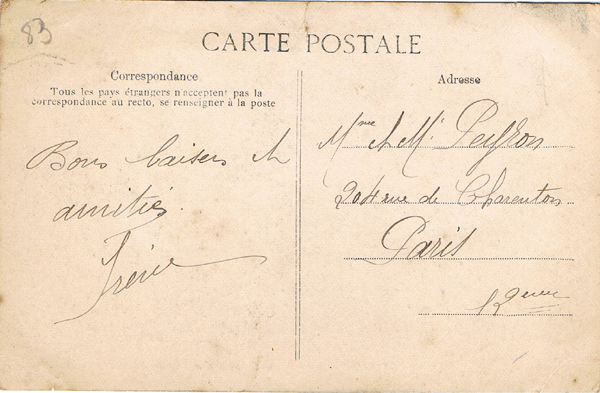 83
CARTE POSTALE
Correspondance
Tous les pays étrangers n'acceptent pas la
correspondance au recto, se renseigner à la poste
Bons baisers et
amitiés.
Irène
Adresse
Mme et Mr Peyron
204 rue de Charenton
Paris
12eme